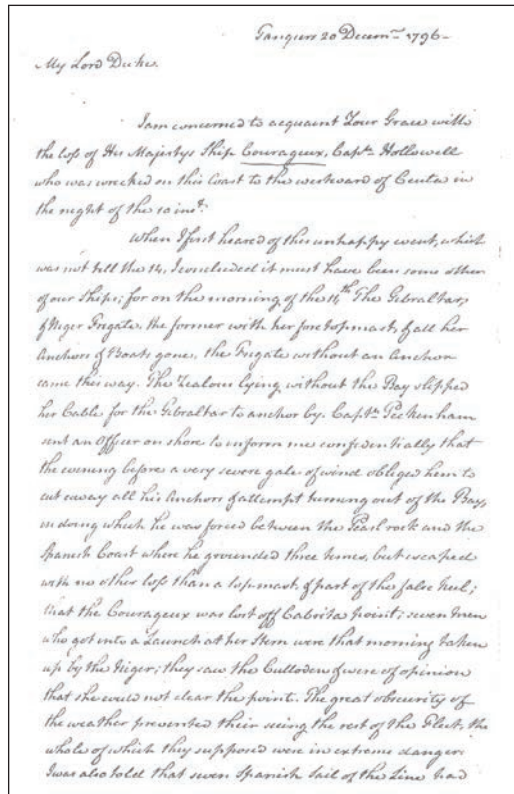 Tangiers 20 Decemr. 1796 -
My Lord Duke.
I am concerned to acquaint Your Grace with
the loss of His Majestys Ship Courageux, Captn. Hollowell
who was wrecked on this Coast to the westward of Ceuta in
the night of the 10 inst.
When I first heard of this unhappy event, which
was not till the 14, I concluded it must have been some other
of our Ships; for on the morning of the 11th The Gibraltar,
& Niger Frigate, the former with her foretopmast, & all her
Anchors & Boats gone, the Frigate without an Anchor
came this way. The Zealous lying without the Bay slipped
her Cable for the Gibraltar to anchor by. Captn. Peckenham
sent an Officer on shore to inform me confidentially that
the evening before a very severe gale of wind obliged him to
cut away all his Anchors & attempt turning out of the Bay,
in doing which he was forced between the Pearl rock and the
Spanish Coast where he grounded three times, but escaped
with no other loss than a topmast & part of the false keel;
that the Courageux was lost off Cabrita point; seven men
who got into a Launch at her Stern were that morning taken
up by the Niger; they saw the Culloden & were of opinion
that she could not clear the point. The great obscurity of
the weather prevented their seeing the rest of the Fleet, the
whole of which they supposed were in extreme danger.
I was also told that seven Spanish Sail of the Line had